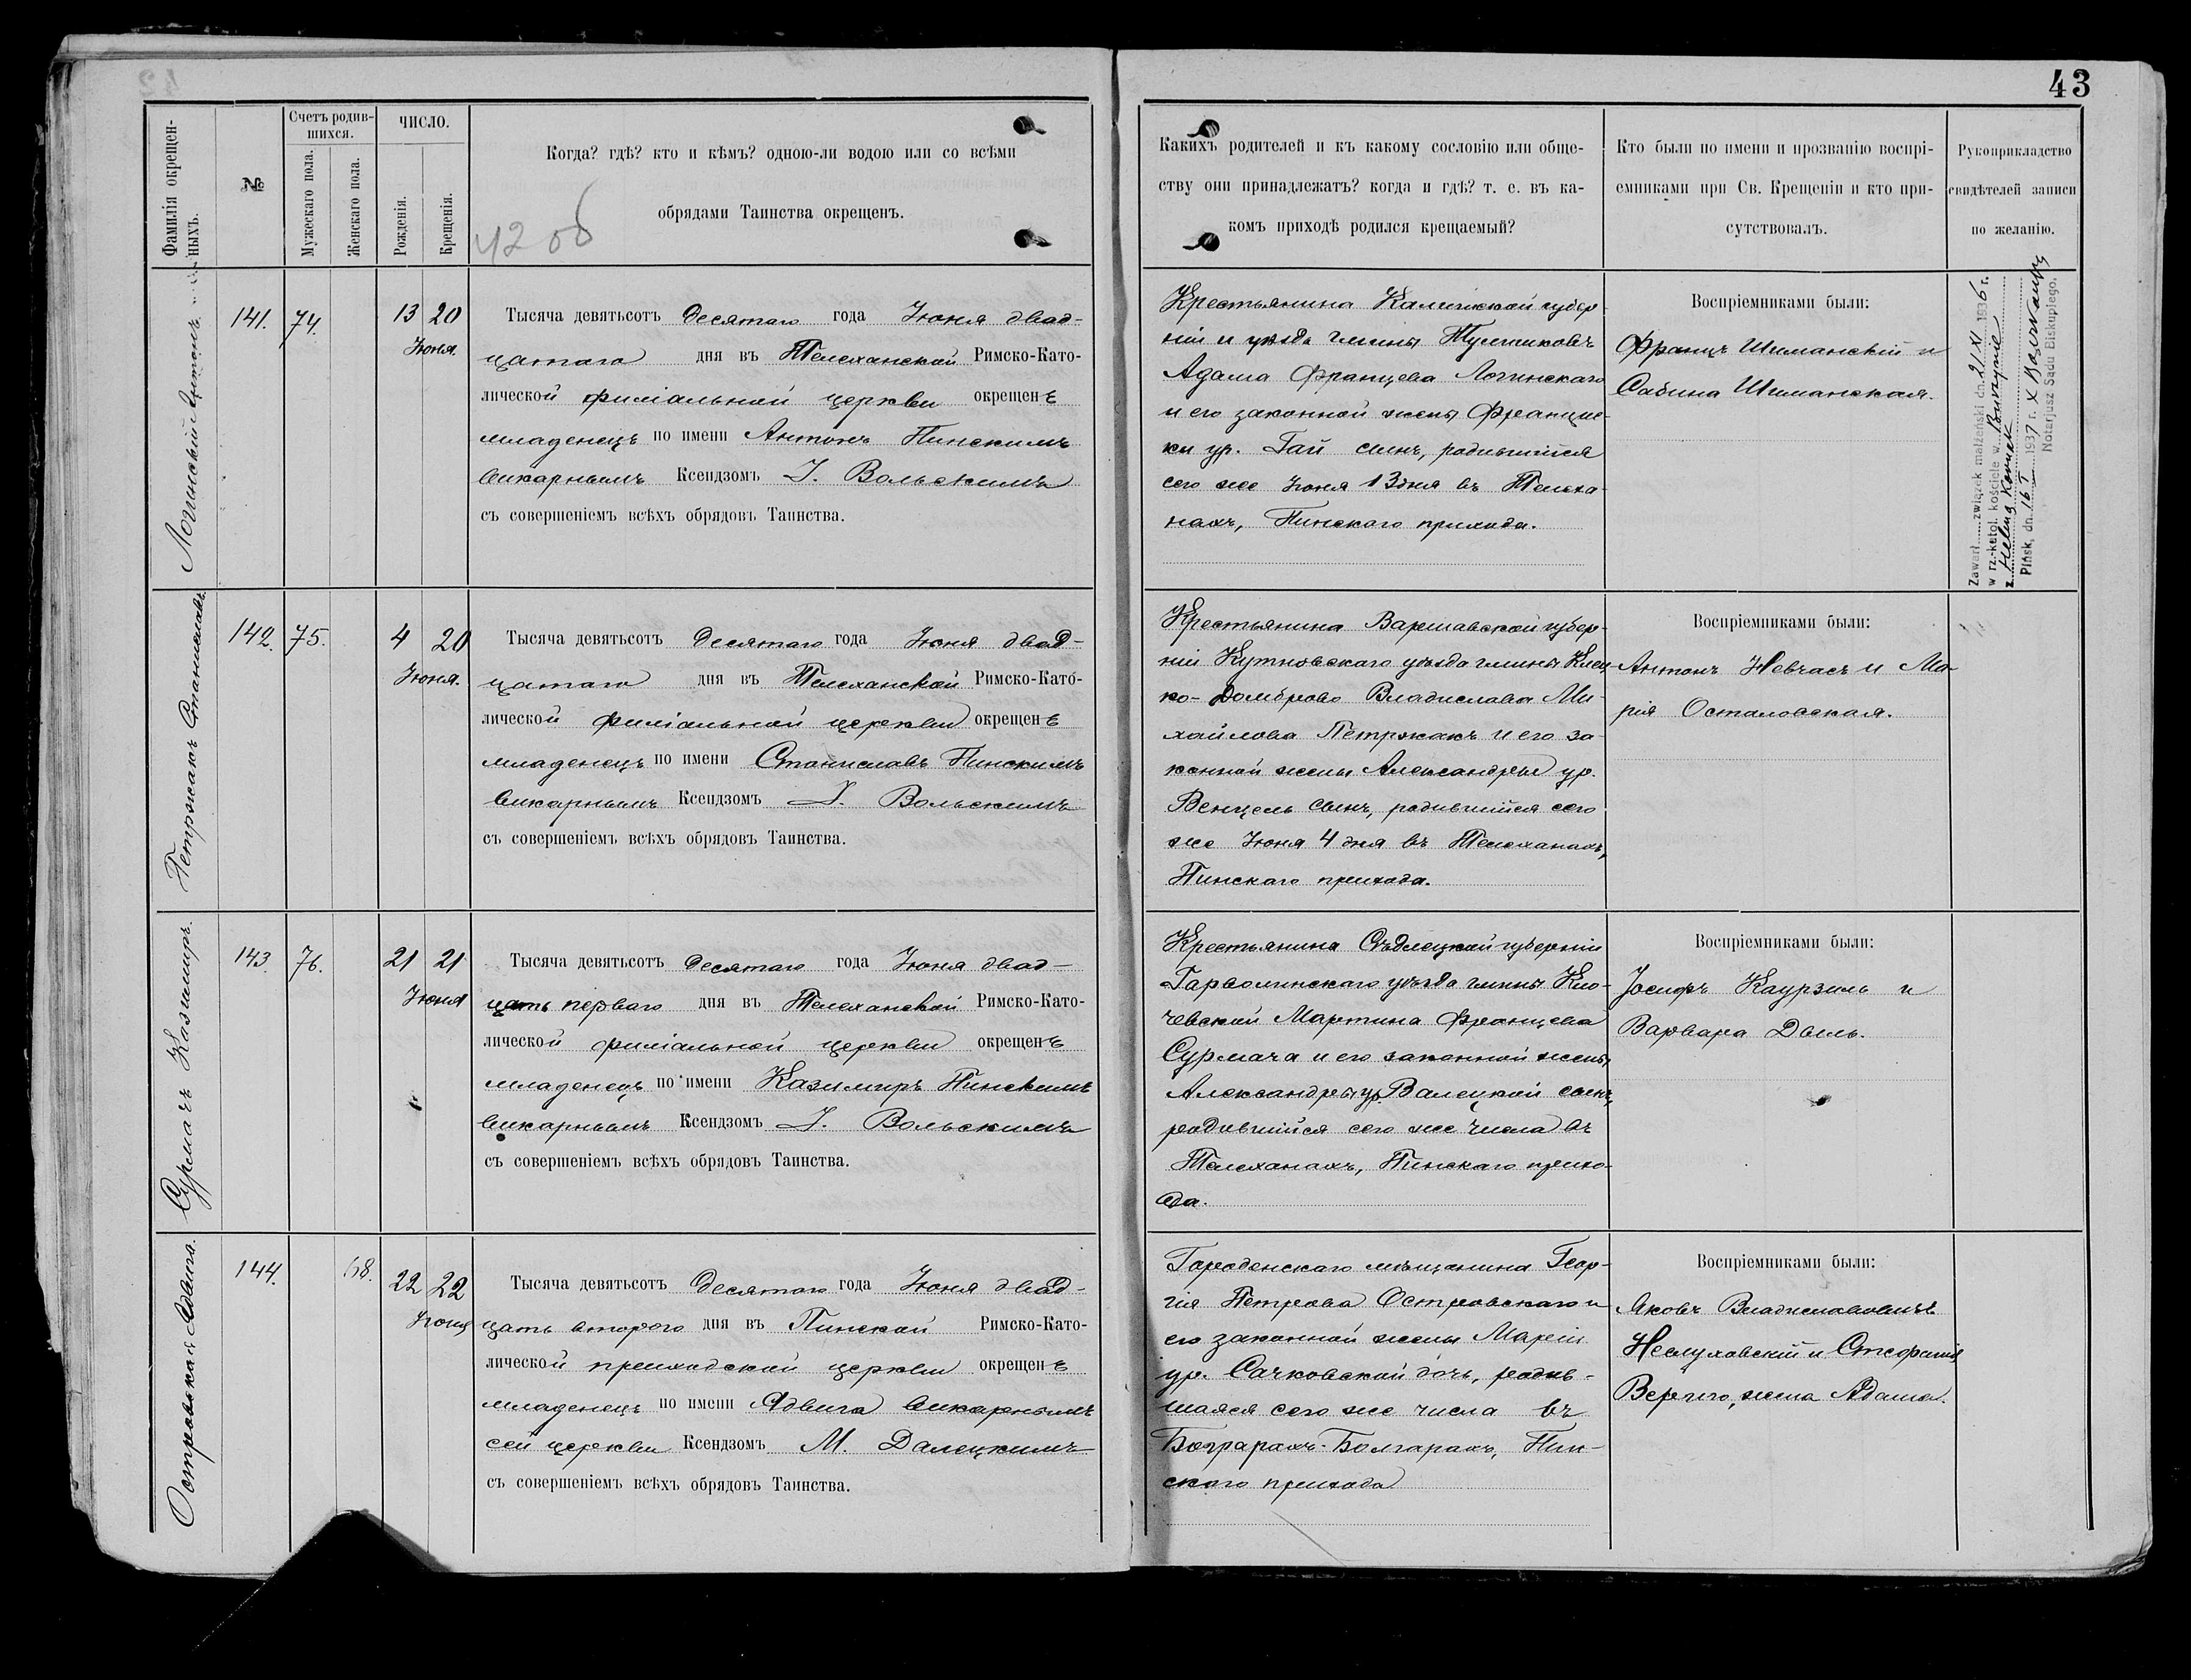 43
Фамилія окрещен-
ныхъ.
№
Счетъ родив-
шихся.
Мужескаго пола.
Женскаго пола.
ЧИСЛО.
Рожденія.
Крещенія.
Когда? гдѣ? кто и кѣмъ? одною-ли водою или со всѣми
обрядами Таинства окрещенъ.
42 об
Какихъ родителей и къ какому сословію или обще-
ству они принадлежатъ? когда и гдѣ? т. е. въ ка-
комъ приходѣ родился крещаемый?
Кто были по имени и прозванію воспрі-
емниками при Св. Крещеніи и кто при-
сутствовалъ.
Рукоприкладство
свидѣтелей записи
по желанію.
Логинскій Антонъ
141. 74. 13 20
Іюня.
Тысяча девятьсотъ десятаго года Іюня двад-
цатаго дня въ Телеханской Римско-Като-
лической филіальной церкви окрещенъ
младенецъ по имени Антонъ Пинскимъ
викарнымъ Ксендзомъ І. Вольскимъ
съ совершеніемъ всѣхъ обрядовъ Таинства.
Крестьянина Калишской губер-
ніи и уѣзда гмины
Адама Францева Логинскаго
и его законной жены Францис-
ки ур. Гай сынъ, родившійся
сего же Іюня 13 дня въ Телеха-
нахъ, Пинскаго прихода.
Воспріемниками были:
Францъ Шиманскій и
Сабина Шиманская.
Zawarł związek małżeński dn. 21/XI 1936 r.
w rz.-katol. kościele w
z Heleną
Pińsk, dn. 16 I 1937 r. X
Notarjusz Sądu Biskupiego.
Петржакъ Станиславъ.
142. 75. 4 20
Іюня.
Тысяча девятьсотъ десятаго года Іюня двад-
цатаго дня въ Телеханской Римско-Като-
лической филіальной церкви окрещенъ
младенецъ по имени Станиславъ Пинскимъ
викарнымъ Ксендзомъ І. Вольскимъ
съ совершеніемъ всѣхъ обрядовъ Таинства.
Крестьянина Варшавской губер-
ніи Кутновскаго уѣзда гмины
Домброво Владислава Ми-
хайлова Петржакъ и его за-
конной жены Александры ур.
Венцель сынъ, родившійся сего
же Іюня 4 дня въ Телеханахъ,
Пинскаго прихода.
Воспріемниками были:
Антонъ Невчасъ и Ма
рія Осталовская.
Сурмачъ Казимиръ.
143. 76. 21 21
Іюня
Тысяча девятьсотъ десятаго года Іюня двад-
цать перваго дня въ Телеханской Римско-Като-
лической филіальной церкви окрещенъ
младенецъ по имени Казимиръ Пинскимъ
викарнымъ Ксендзомъ І. Вольскимъ
съ совершеніемъ всѣхъ обрядовъ Таинства.
Крестьянина Сѣдлецкой губерніи
Гарволинскаго уѣзда гмины Кло-
чевской Мартина Францева
Сурмача и его законной жены
Александры ур. Валецкой сынъ,
родившійся сего же числа въ
Телеханахъ, Пинскаго прихо-
да.
Воспріемниками были:
Іосифъ Каурзель и
Варвара Дыль.
Островская Ядвига.
144. 68. 22 22
Іюня
Тысяча девятьсотъ десятаго года Іюня двад-
цать второго дня въ Пинской Римско-Като-
лической приходской церкви окрещенъ
младенецъ по имени Ядвига викарнымъ
сей церкви Ксендзомъ М. Далецкимъ
съ совершеніемъ всѣхъ обрядовъ Таинства.
Городенскаго мѣщанина Геор-
гія Петрова Островскаго и
его законной жены Маріи
ур. Сачковской дочь, родив-
шаяся сего же числа въ
Болгарахъ, Пин-
скаго прихода
Воспріемниками были:
Яковъ Владиславовичъ
Неслуховскій и Стефанія
Вериго, жена Адама.